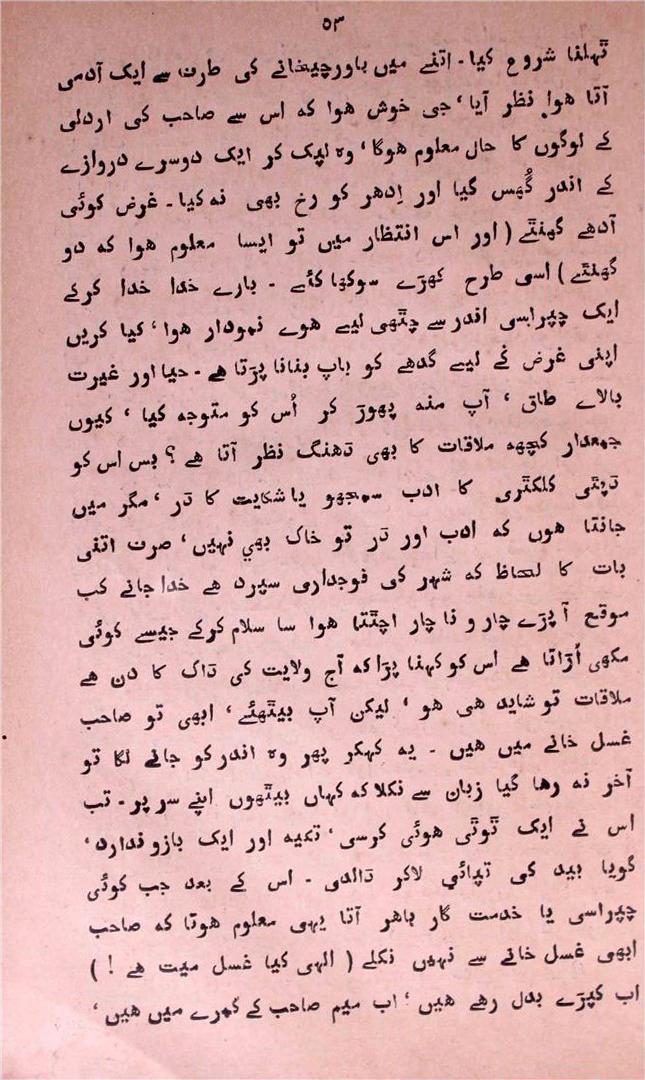 ۵۳
ٹہلنا شروع کیا - اتنے میں باورچیخانے کی طرف سے ایک آدمی
آتا ہوا نظر آیا ، جی خوش ہوا کہ اس سے صاحب کی اردلی
کے لوگوں کا حال معلوم ہوگا ، وہ لپک کر ایک دوسرے دروازے
کے اندر گُھس گیا اور اِدھر کو رخ بھی نہ کیا - غرض کوئی
آدھے گھنٹے ( اور اس انتظار میں تو ایسا معلوم ہوا کہ دو
گھنٹے ) اسی طرح کھڑے سوکھا کئے - بارے خدا خدا کرکے
ایک چپراسی اندر سے چٹھی لیے ہوے نمودار ہوا ، کیا کریں
اپنی غرض کے لیے گدھے کو باپ بنانا پڑتا ہے - حیا اور غیرت
بالاے طاق ، آپ منہ پھوڑ کر اُس کو متوجہ کیا ، کیوں
جمعدار کچھہ ملاقات کا بھی ڈھنگ نظر آتا ہے ؟ بس اس کو
ڈپٹی کلکٹری کا ادب سمجھو یا شکایت کا ڈر ، مگر میں
جانتا ہوں کہ ادب اور ڈر تو خاک بھی نہیں ، صرف اتنی
بات کا لحاظ کہ شہر کی فوجداری سپرد ہے خدا جانے کب
موقع آ پڑے چار و نا چار اچٹتا ہوا سا سلام کرکے جیسے کوئی
مکھی اُڑاتا ہے اس کو کہنا پڑا کہ آج ولایت کی ڈاک کا دن ہے
ملاقات تو شاید ہی ہو ، لیکن آپ بیٹھئے ، ابھی تو صاحب
غسل خانے میں ہیں - یہ کہکر پھر وہ اندر کو جانے لگا تو
آخر نہ رہا گیا زبان سے نکلا کہ کہاں بیٹھوں اپنے سر پر - تب
اس نے ایک ٹوٹی ہوئی کرسی ، تکیہ اور ایک بازو ندارد ،
گویا بید کی تپائی لاکر ڈالدی - اس کے بعد جب کوئی
چپراسی یا خدمت گار باہر آتا یہی معلوم ہوتا کہ صاحب
ابھی غسل خانے سے نہیں نکلے ( الہی کیا غسل میت ہے ! )
اب کپڑے بدل رہے ہیں ، اب میم صاحب کے کمرے میں ہیں ،